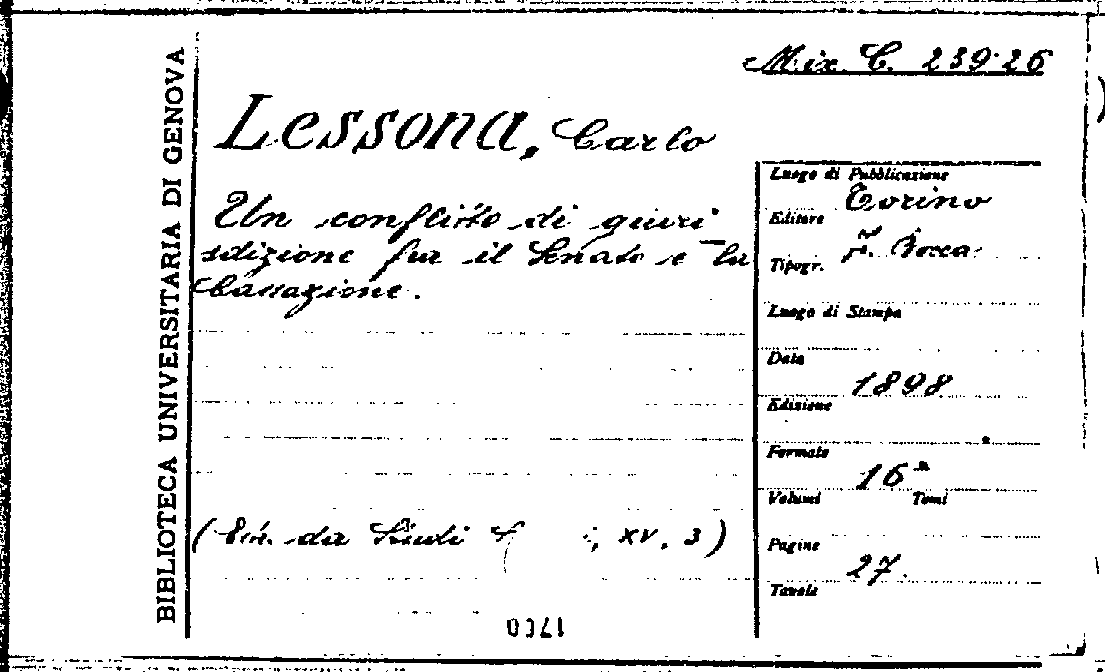 BIBLIOTECA UNIVERSITARIA DI GENOVA
Mix. C. 239.26
Lessona, Carlo
Un conflitto di giuri
sdizione fra il Senato e la
Cassazione.
(Estr. da Studi XV, 3)
Luogo di Pubblicazione
Torino
Editore
F. Bocca
Tipogr.
Luogo di Stampa
Data
1898
Edizione
Formato
16°
Volumi Tomi
Pagine
27.
Tavole
1700